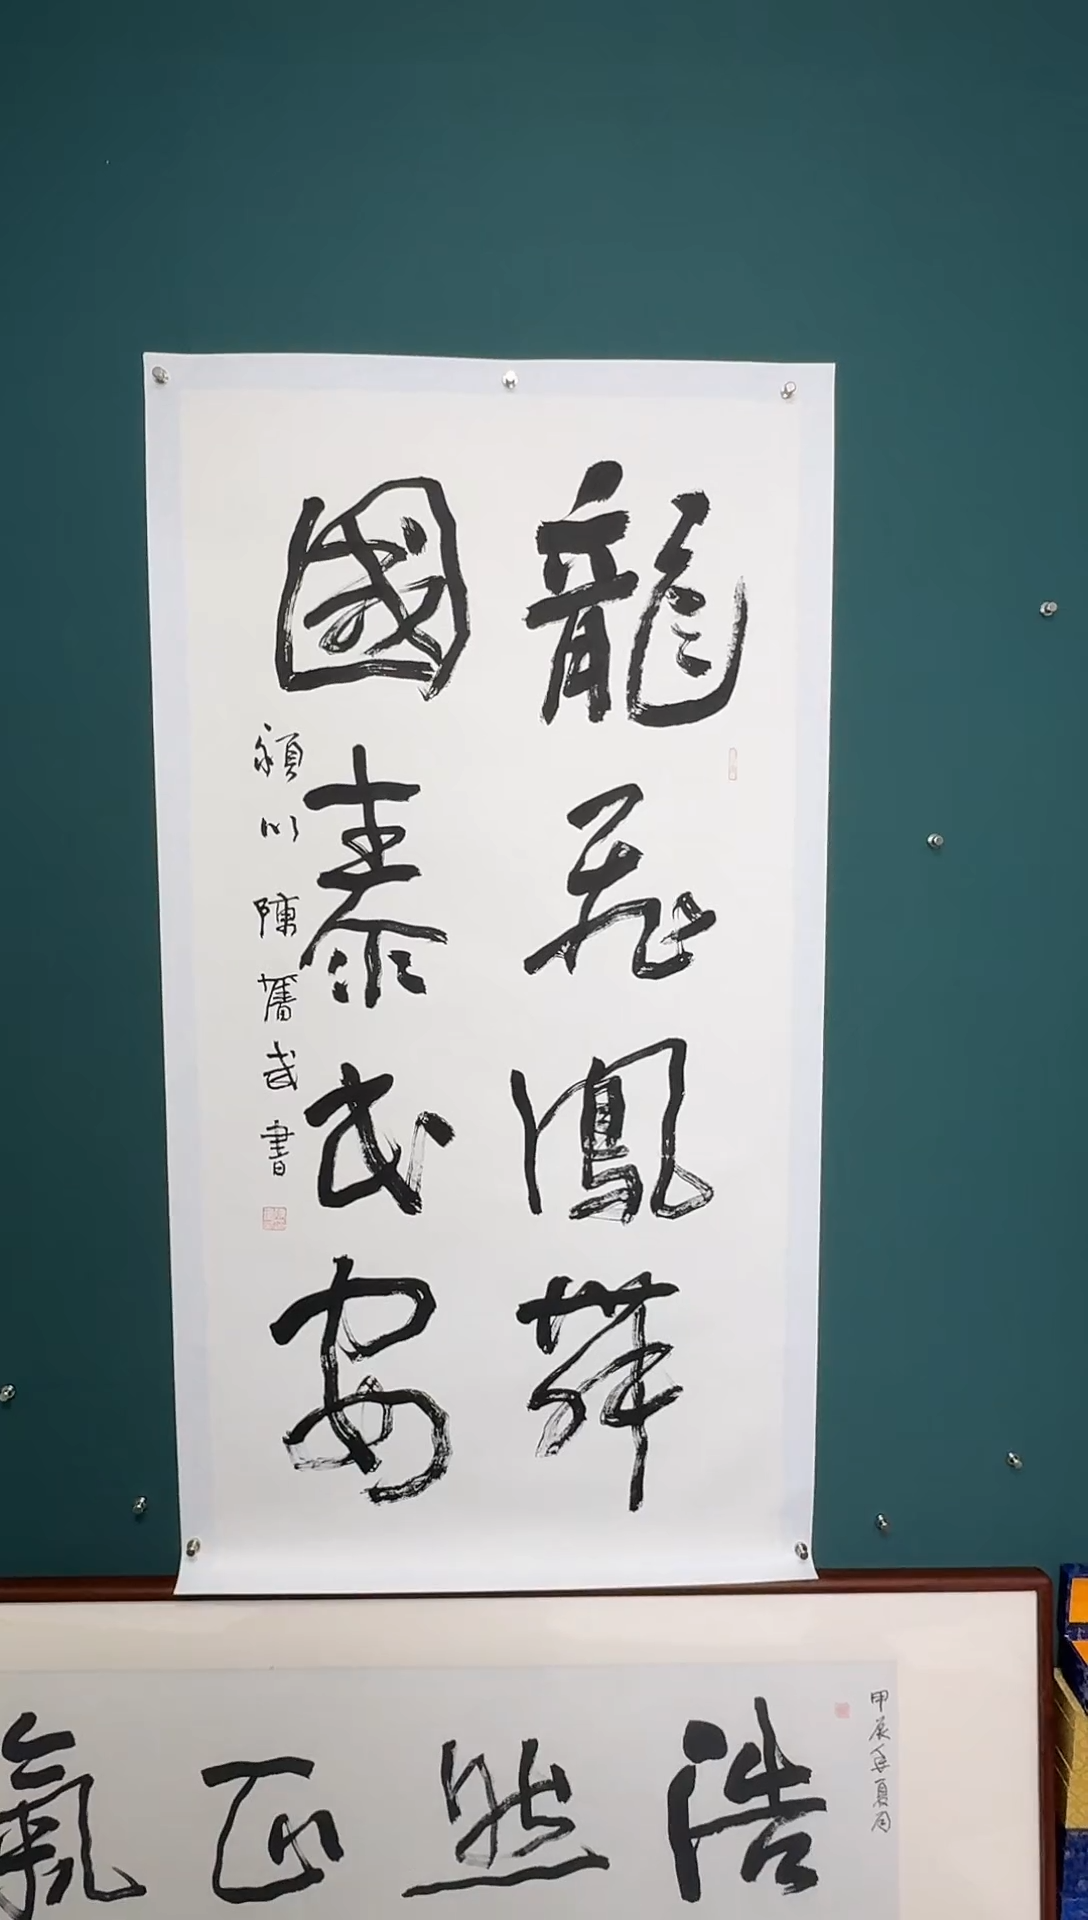 龍飛鳳舞
國泰民安
潁川陳舊武書
浩然正氣
甲辰年夏月